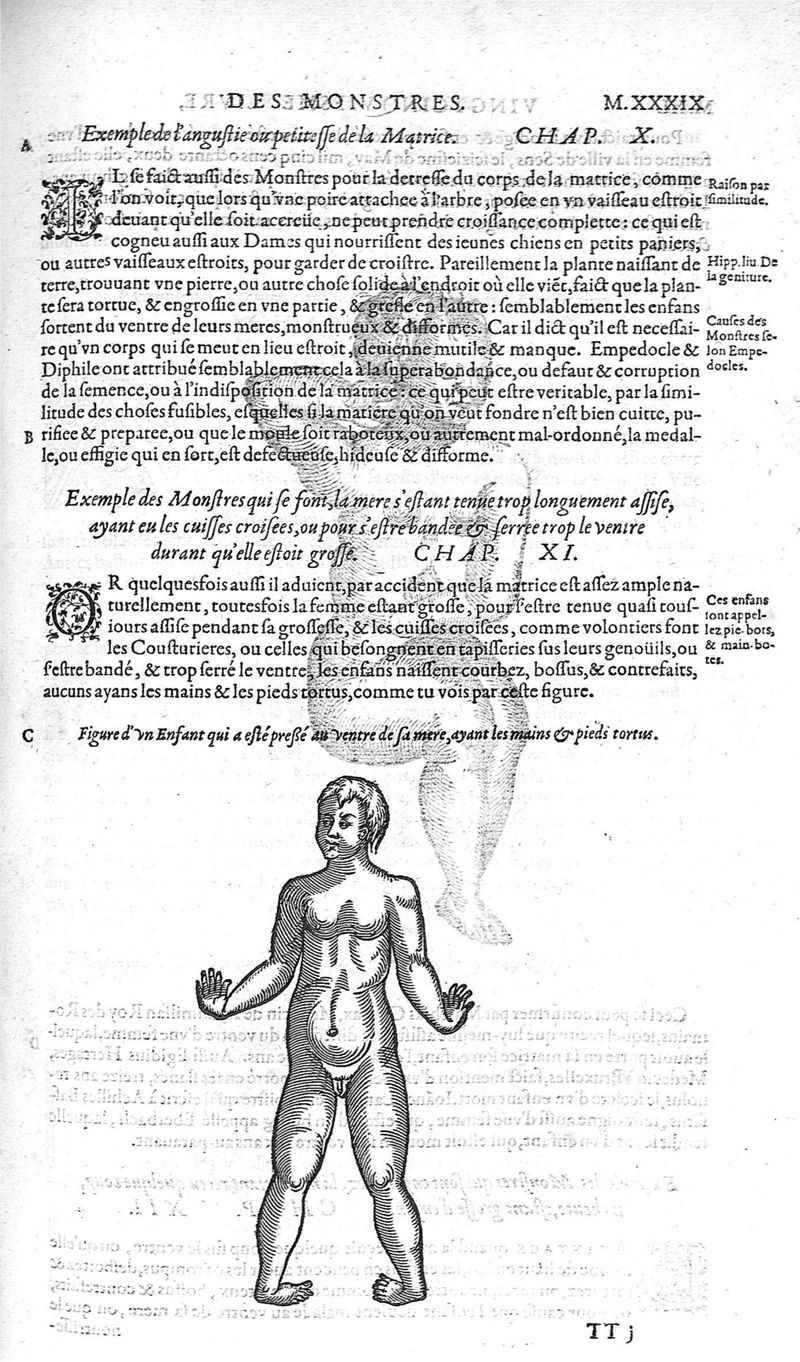 DES MONSTRES. M.XXXIX.
A Exemple de l'angustie ou petitesse de la Matrice. CHAP. X.
IL se faict aussi des Monstres pour la detresse du corps de la matrice, comme
l'on voit, que lors qu'vne poire attachee à l'arbre, posee en vn vaisseau estroit
deuant qu'elle soit acreüe, ne peut prendre croissance complette: ce qui est
cogneu aussi aux Dames qui nourrissent des ieunes chiens en petits paniers,
ou autres vaisseaux estroits, pour garder de croistre. Pareillement la plante naissant de
terre, trouuant vne pierre, ou autre chose solide à l'endroit où elle viēt, faict que la plan-
te sera tortue, & engrossie en vne partie, & gresle en l'autre: semblablement les enfans
sortent du ventre de leurs meres, monstrueux & difformes. Car il dict qu'il est necessai-
re qu'vn corps qui se meut en lieu estroit, deuienne mutile & manque. Empedocle &
Diphile ont attribué semblablement cela à la superabondance, ou defaut & corruption
de la semence, ou à l'indisposition de la matrice: ce qui peut estre veritable, par la simi-
litude des choses fusibles, esquelles si la matiere qu'on veut fondre n'est bien cuitte, pu-
B rifiee & preparee, ou que le moule soit raboteux, ou autrement mal-ordonné, la medal-
le, ou effigie qui en sort, est defectueuse, hideuse & difforme.
Raison par
similitude.
Hipp. liu De
la geniture.
Causes des
Monstres se-
lon Empe-
docles.
Exemple des Monstres qui se font, la mere s'estant tenue trop longuement assise,
ayant eu les cuisses croisees, ou pour s'estre bandee & serree trop le ventre
durant qu'elle estoit grosse. CHAP. XI.
OR quelquesfois aussi il aduient, par accident que la matrice est assez ample na-
turellement, toutesfois la femme estant grosse, pour s'estre tenue quasi tous-
iours assise pendant sa grossesse, & les cuisses croisees, comme volontiers font
les Cousturieres, ou celles qui besongnent en tapisseries sus leurs genoüils, ou
s'estre bandé, & trop serré le ventre, les enfans naissent courbez, bossus, & contrefaits,
aucuns ayans les mains & les pieds tortus, comme tu vois par ceste figure.
Ces enfans
sont appel-
lez pie-bots,
& main-bo-
tes.
C Figure d'vn Enfant qui a esté pressé au ventre de sa mere, ayant les mains & pieds tortus.
TT j